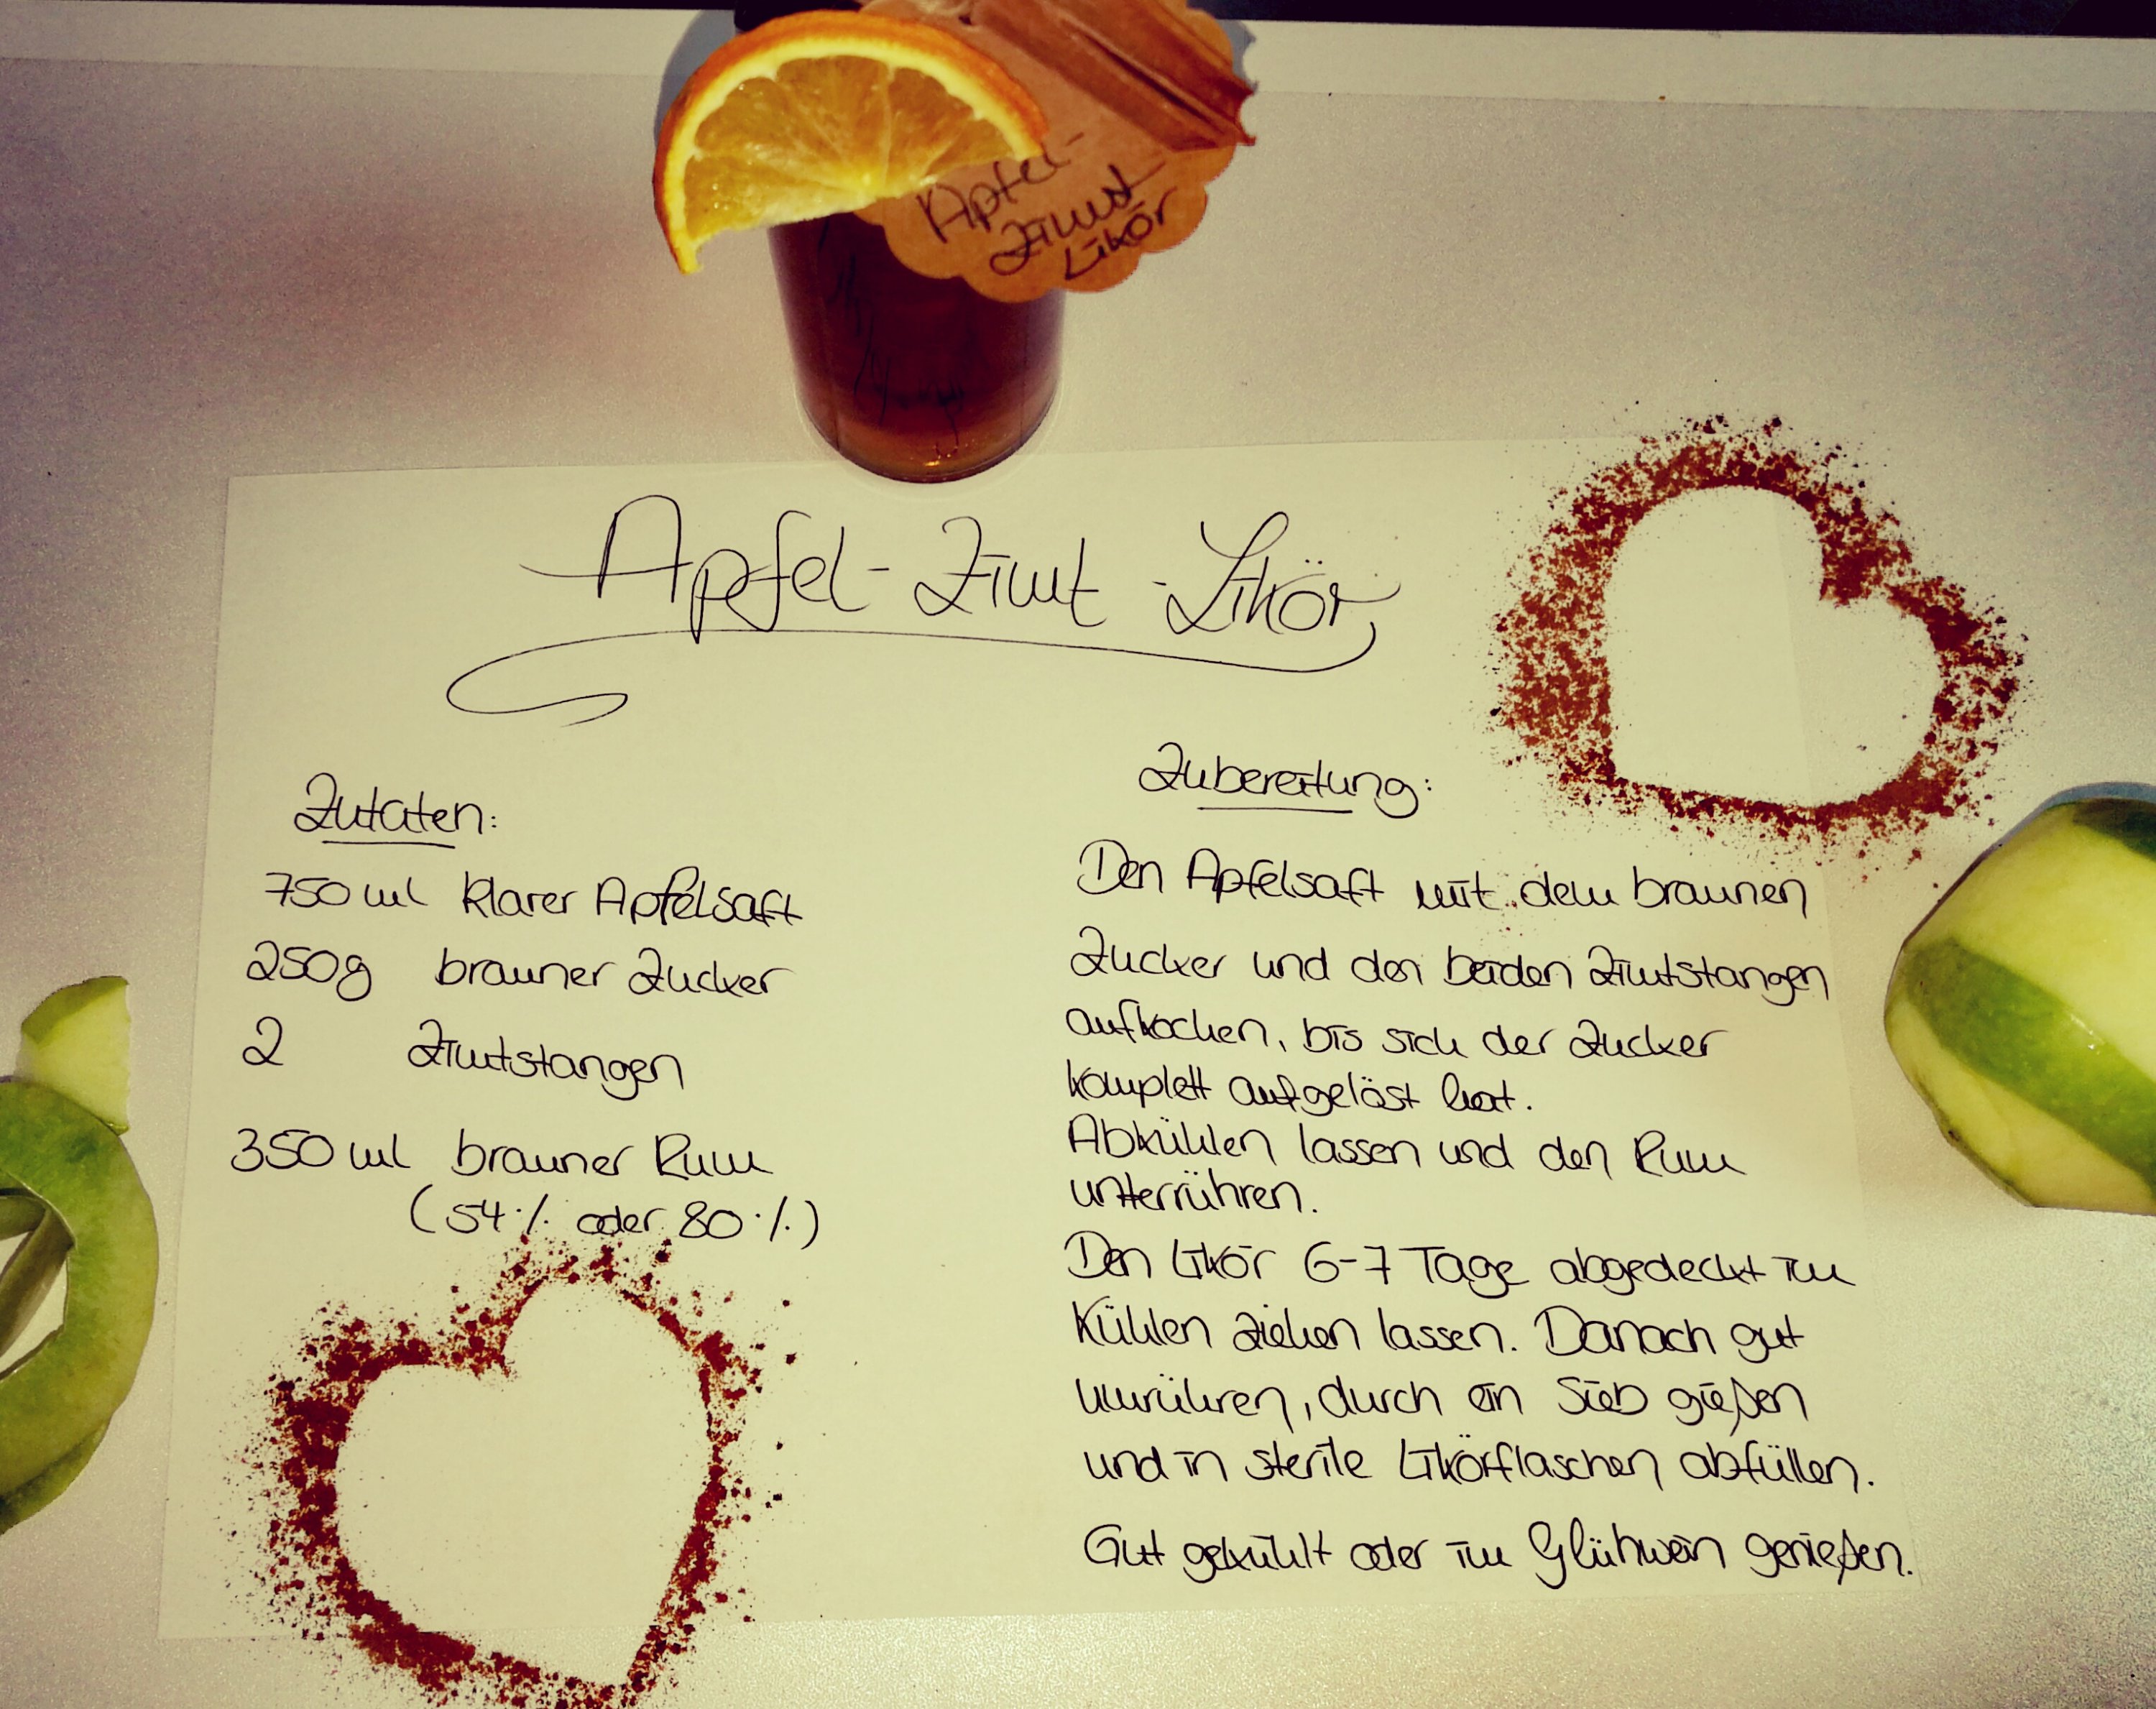 Apfel-
Zimt
Likör
Apfel-Zimt-Likör
Zutaten:
750 ml klarer Apfelsaft
250g brauner Zucker
2 Zimtstangen
350 ml brauner Rum
(54% oder 80%)
Zubereitung:
Den Apfelsaft mit dem braunen
Zucker und den beiden Zimtstangen
aufkochen, bis sich der Zucker
komplett aufgelöst hat.
Abkühlen lassen und den Rum
unterrühren.
Den Likör 6-7 Tage abgedeckt im
Kühlen ziehen lassen. Danach gut
umrühren, durch ein Sieb gießen
und in sterile Likörflaschen abfüllen.
Gut gekühlt oder im Glühwein genießen.